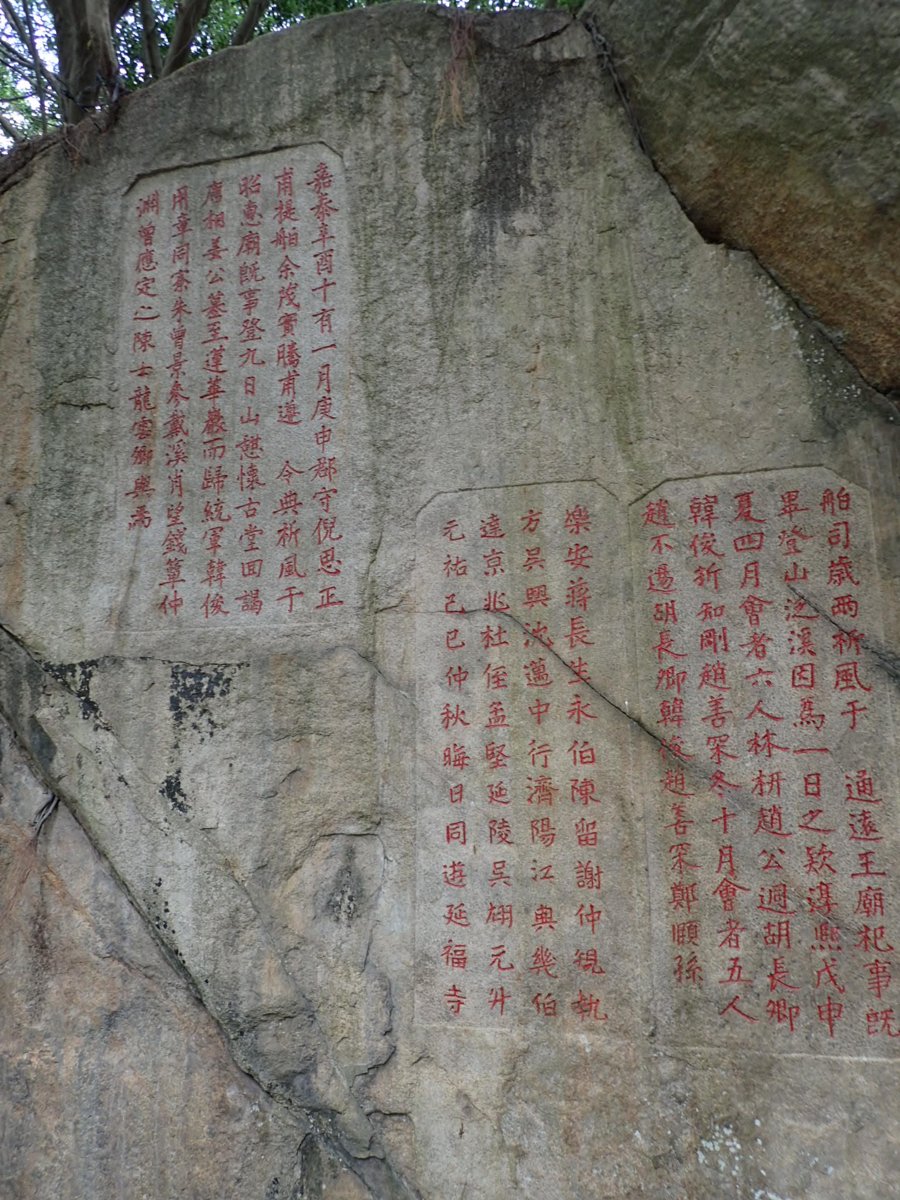 舶司歲兩祈風于 通遠王廟祀事既
畢登山泛溪因為一日之欵淳熙戊申
夏四月會者六人林枅趙公迥胡長卿
韓俊折知剛趙善罙冬十月會者五人
趙不逷胡長卿韓俊趙善罙鄭頤孫
樂安蔣長生永伯陳留謝仲規執
方吳興沈邁中行濟陽江與幾伯
達京兆杜侄孟堅延陵吳栩元升
元祐己巳仲秋晦日同遊延福寺
嘉泰辛酉十有一月庚申郡守倪思正
甫提舶余茂實騰甫遵 令典祈風于
昭惠廟既事登九日山憇懷古堂回謁
唐相姜公墓至蓮華巖而歸統軍韓俊
用章同寮朱曾景參戴溪肖望錢簞仲
淵曾應定之陳士龍雲卿與焉